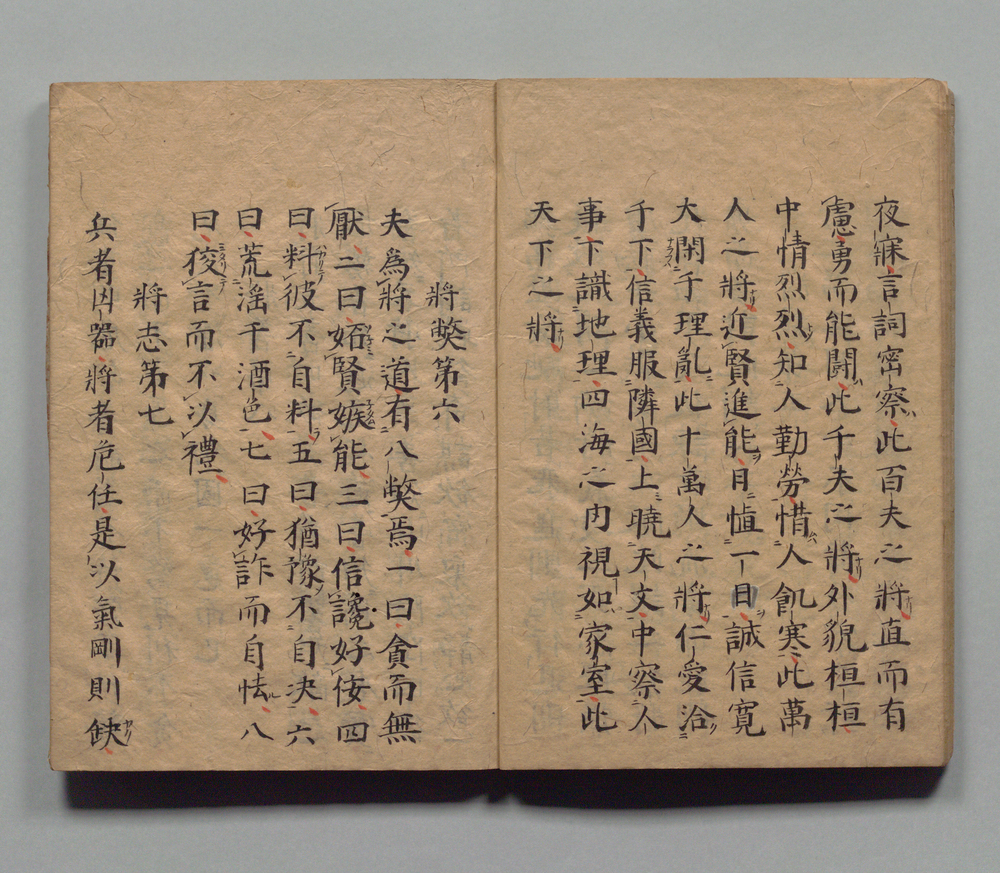 夜寐言詞密察此百夫之將直而有
慮勇而能鬪此千夫之將外貌桓桓
中情烈烈知人勤勞惜人飢寒此萬
人之將近賢進能日慎一日誠信寛
大閑于理亂此十萬人之將仁愛洽
于下信義服隣國上曉天文中察人
事下識地理四海之内視如家室此
天下之將
將獘第六
夫為將之道有八獘焉一曰貪而無
厭二曰妬賢嫉能三曰信讒好佞四
曰料彼不自料五曰猶豫不自决六
曰荒滛于酒色七曰好詐而自怯八
曰狡言而不以禮
將志第七
兵者凶器將者危任是以氣剛則缺